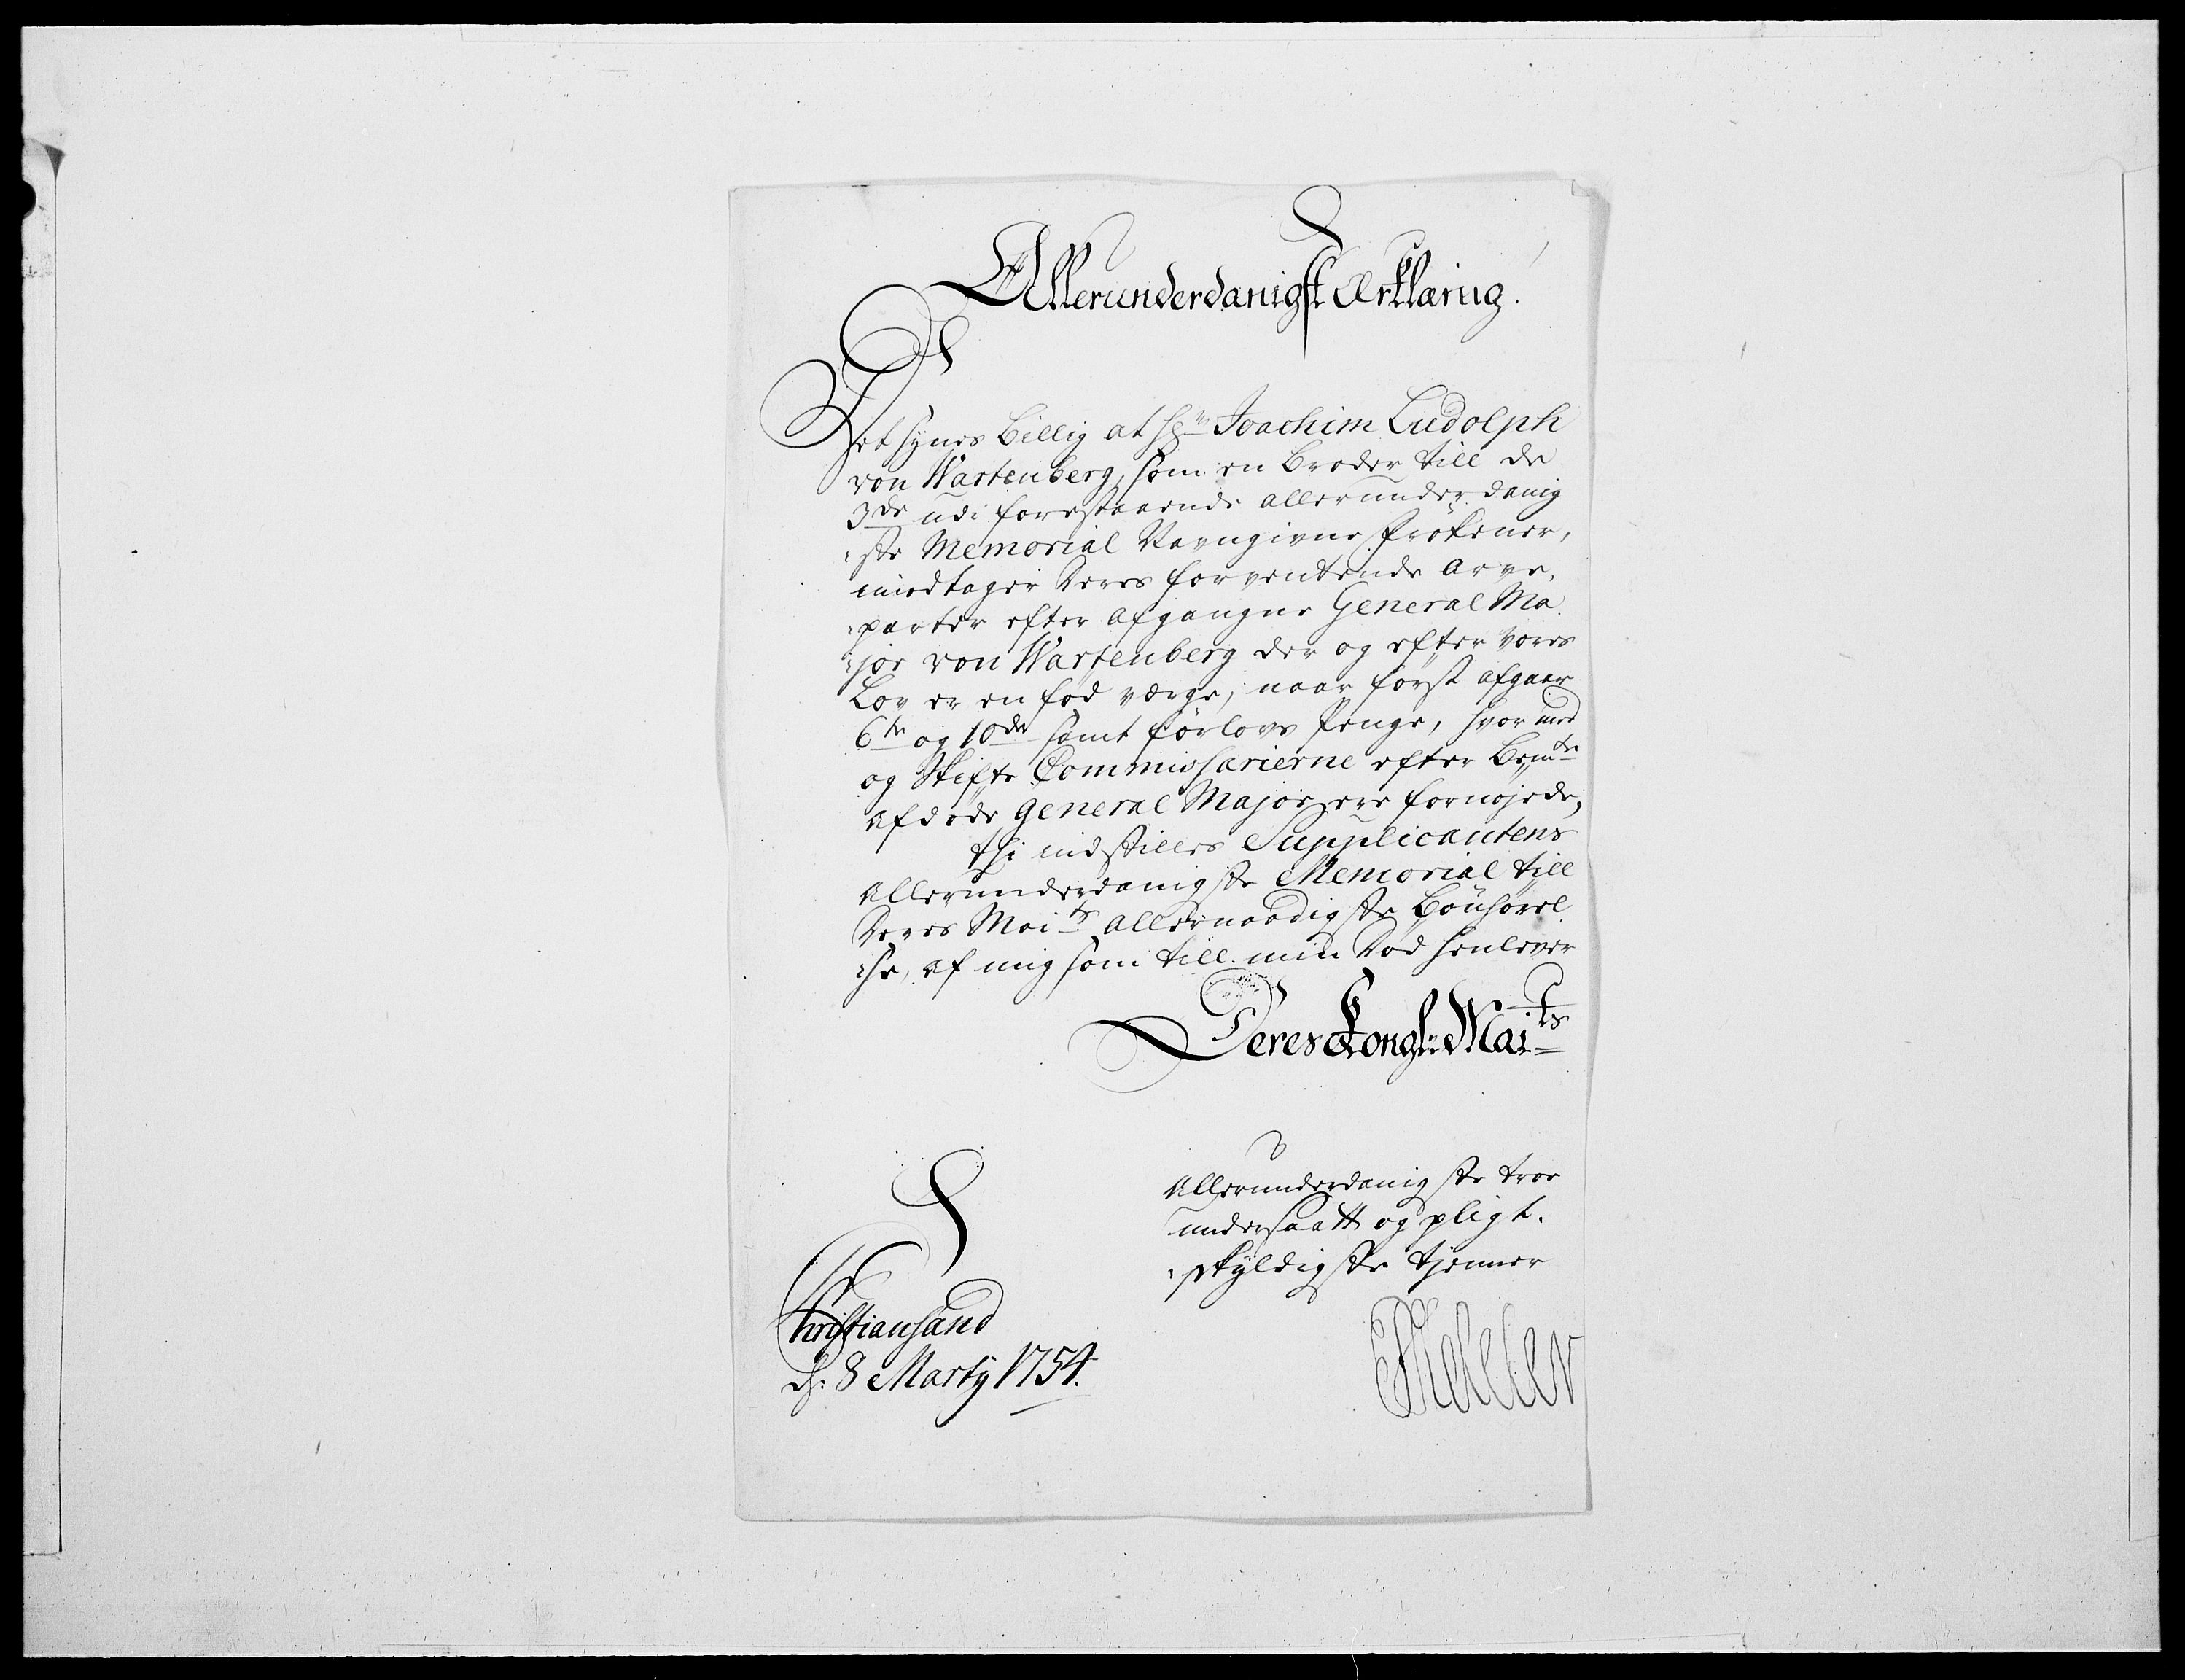 Allerunderdanigst Ærklæring.
Det synes billig at Hr Joachim Ludolph
von Wartenberg, som en broder till de
3de udi forestaaende allerunderdanig
-ste Memorial Navngivne Frökener,
imodtager deres forventende Arve-
-parter efter afgangne General Ma
-jor von Wartenberg der og efter vores
Lov er en fød verge, naar først afgaar
6te og 10de samt forlovs Penge, hvormed
og Skifte Commissarierne efter Bemte
afdøde General Major ere fornøjede,
thi indstilles Supplicantens
allerunderdanigste Memorial till
Deres Maits allernaadigste Bönhörel
-se, af mig som till min Død henlever
Deres Kongl: Maits
Allerunderdanigste troe
undersaatt og pligt-
-skyldigste tjenner
Christiansand
d: 8 Marty 1754.